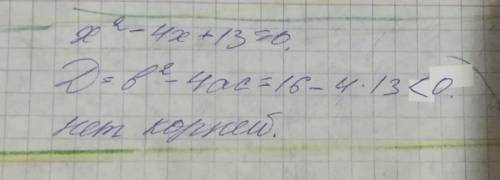 x² - 4x + 13 = 0.
D = b² - 4ac = 16 - 4 · 13 < 0.
нет корней.